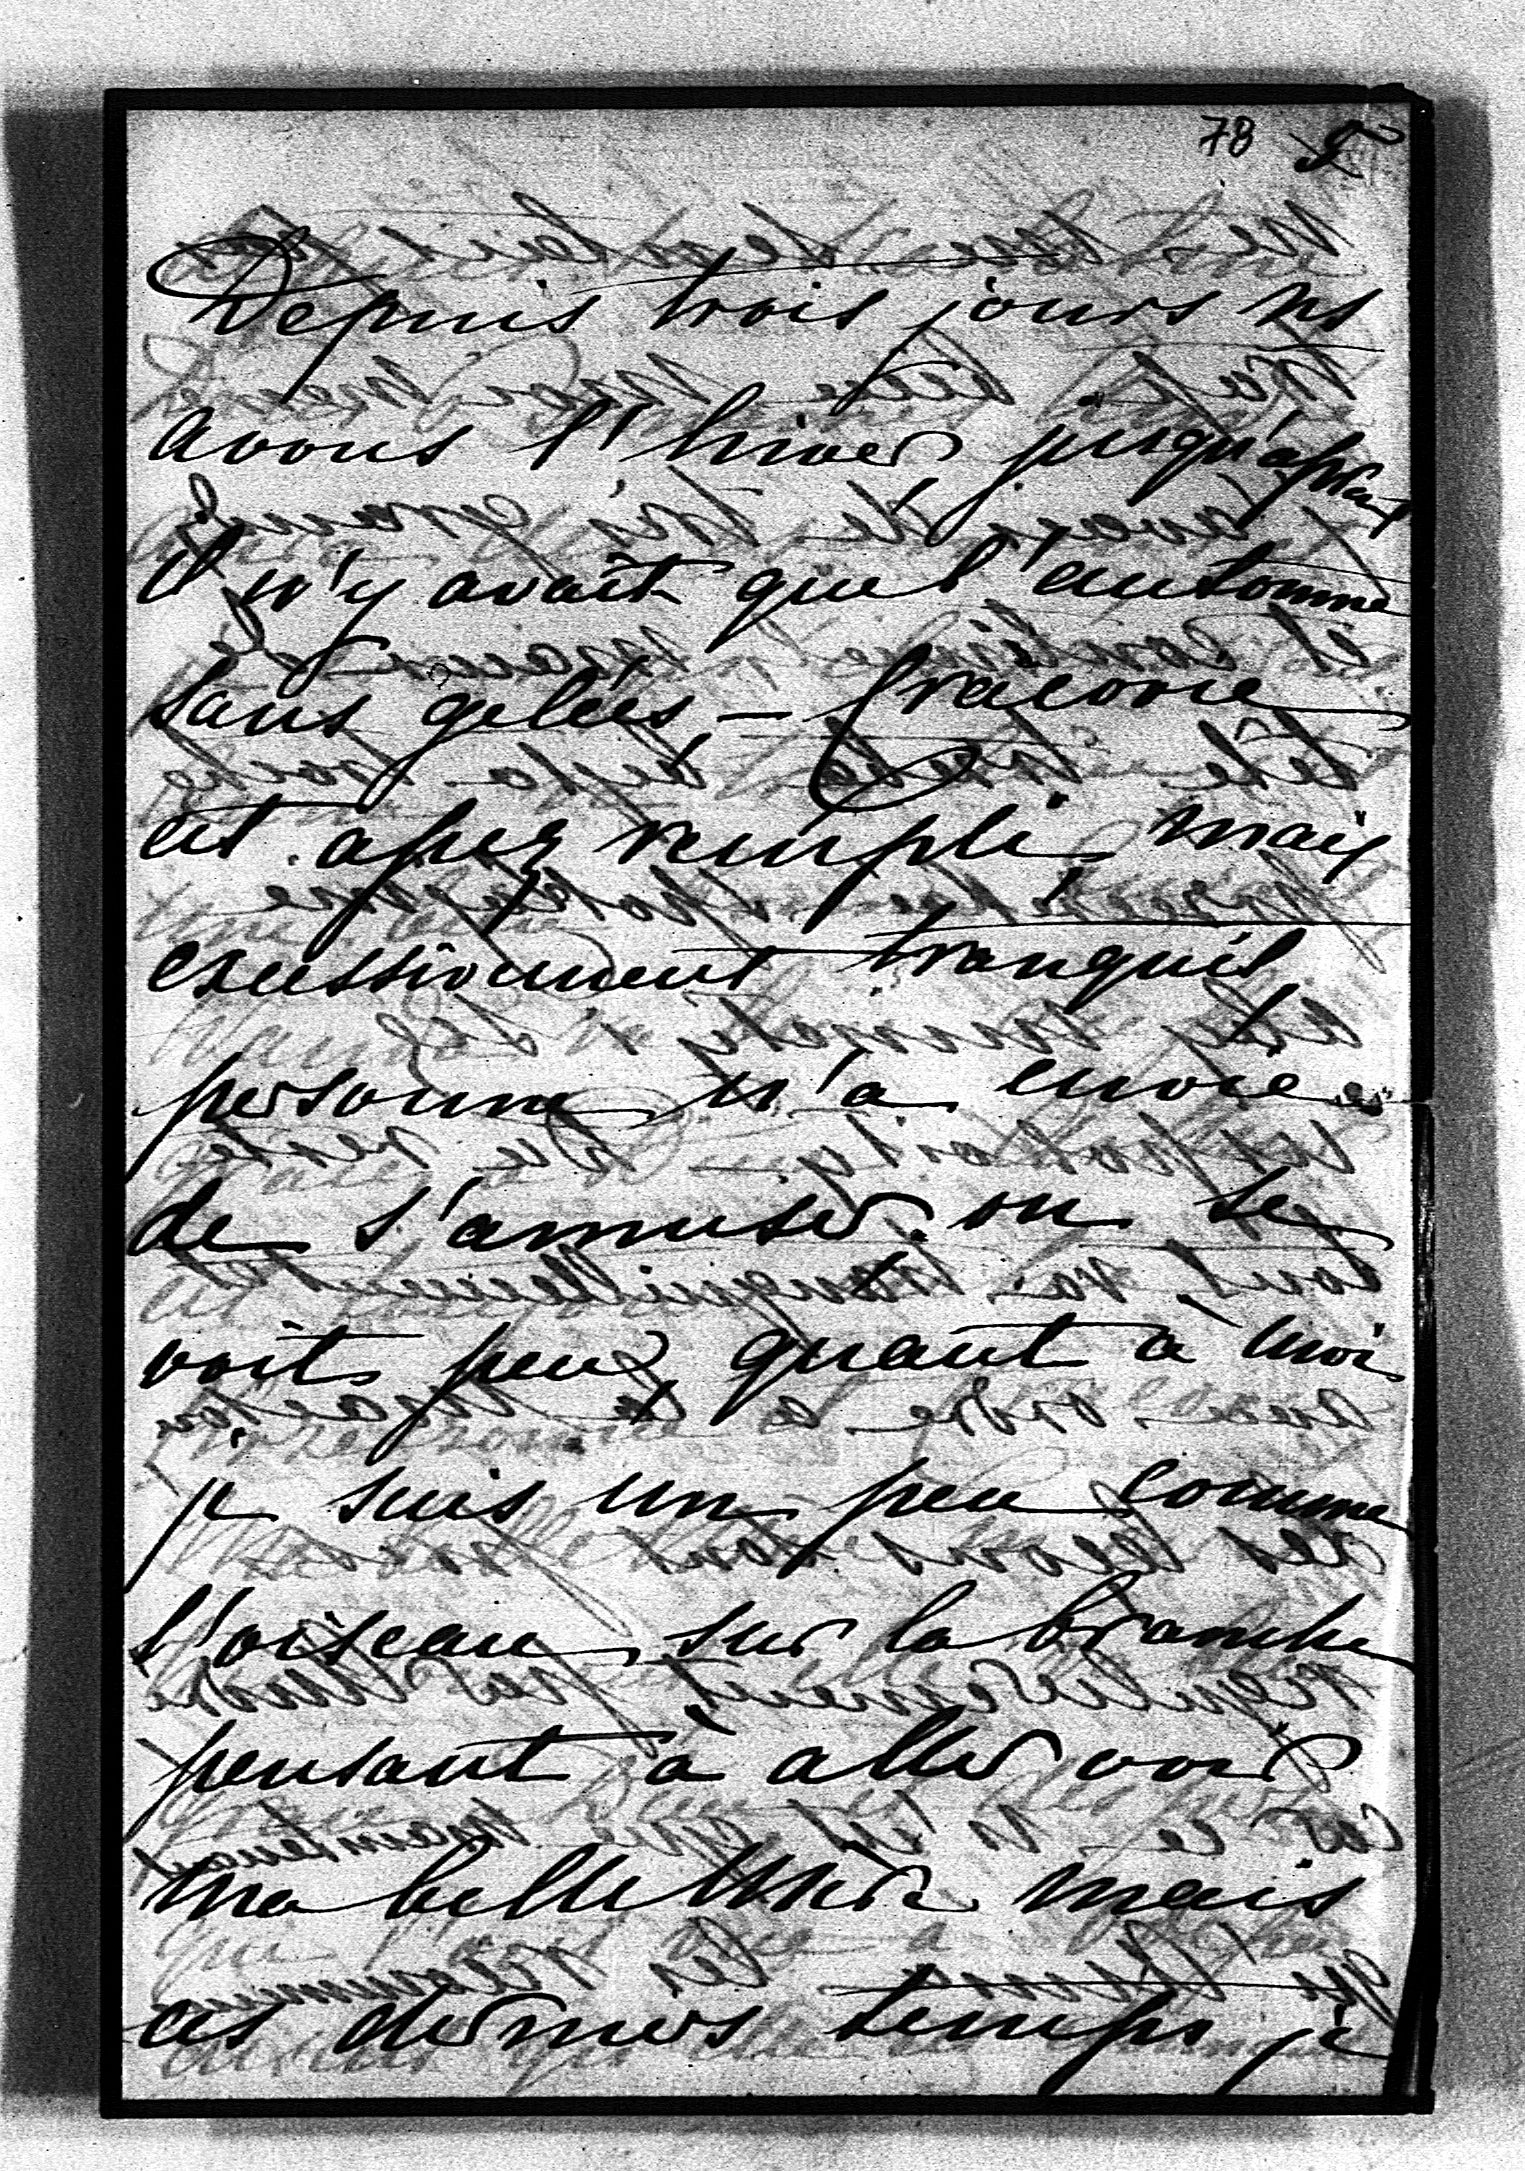 78
Depuis trois jours ns
avons l'hiver jusqu'aprèsent
il n'y avait que l'automne
sans gelées — Cracovie
est assez rempli mais
excessivement tranquil
personne n'a envie
de s'amuser on se
voit peu, quant à moi
je suis un peu comme
l'oiseau sur la branche
pensant à aller voir
ma belle Mère mais
ces derniers temps je